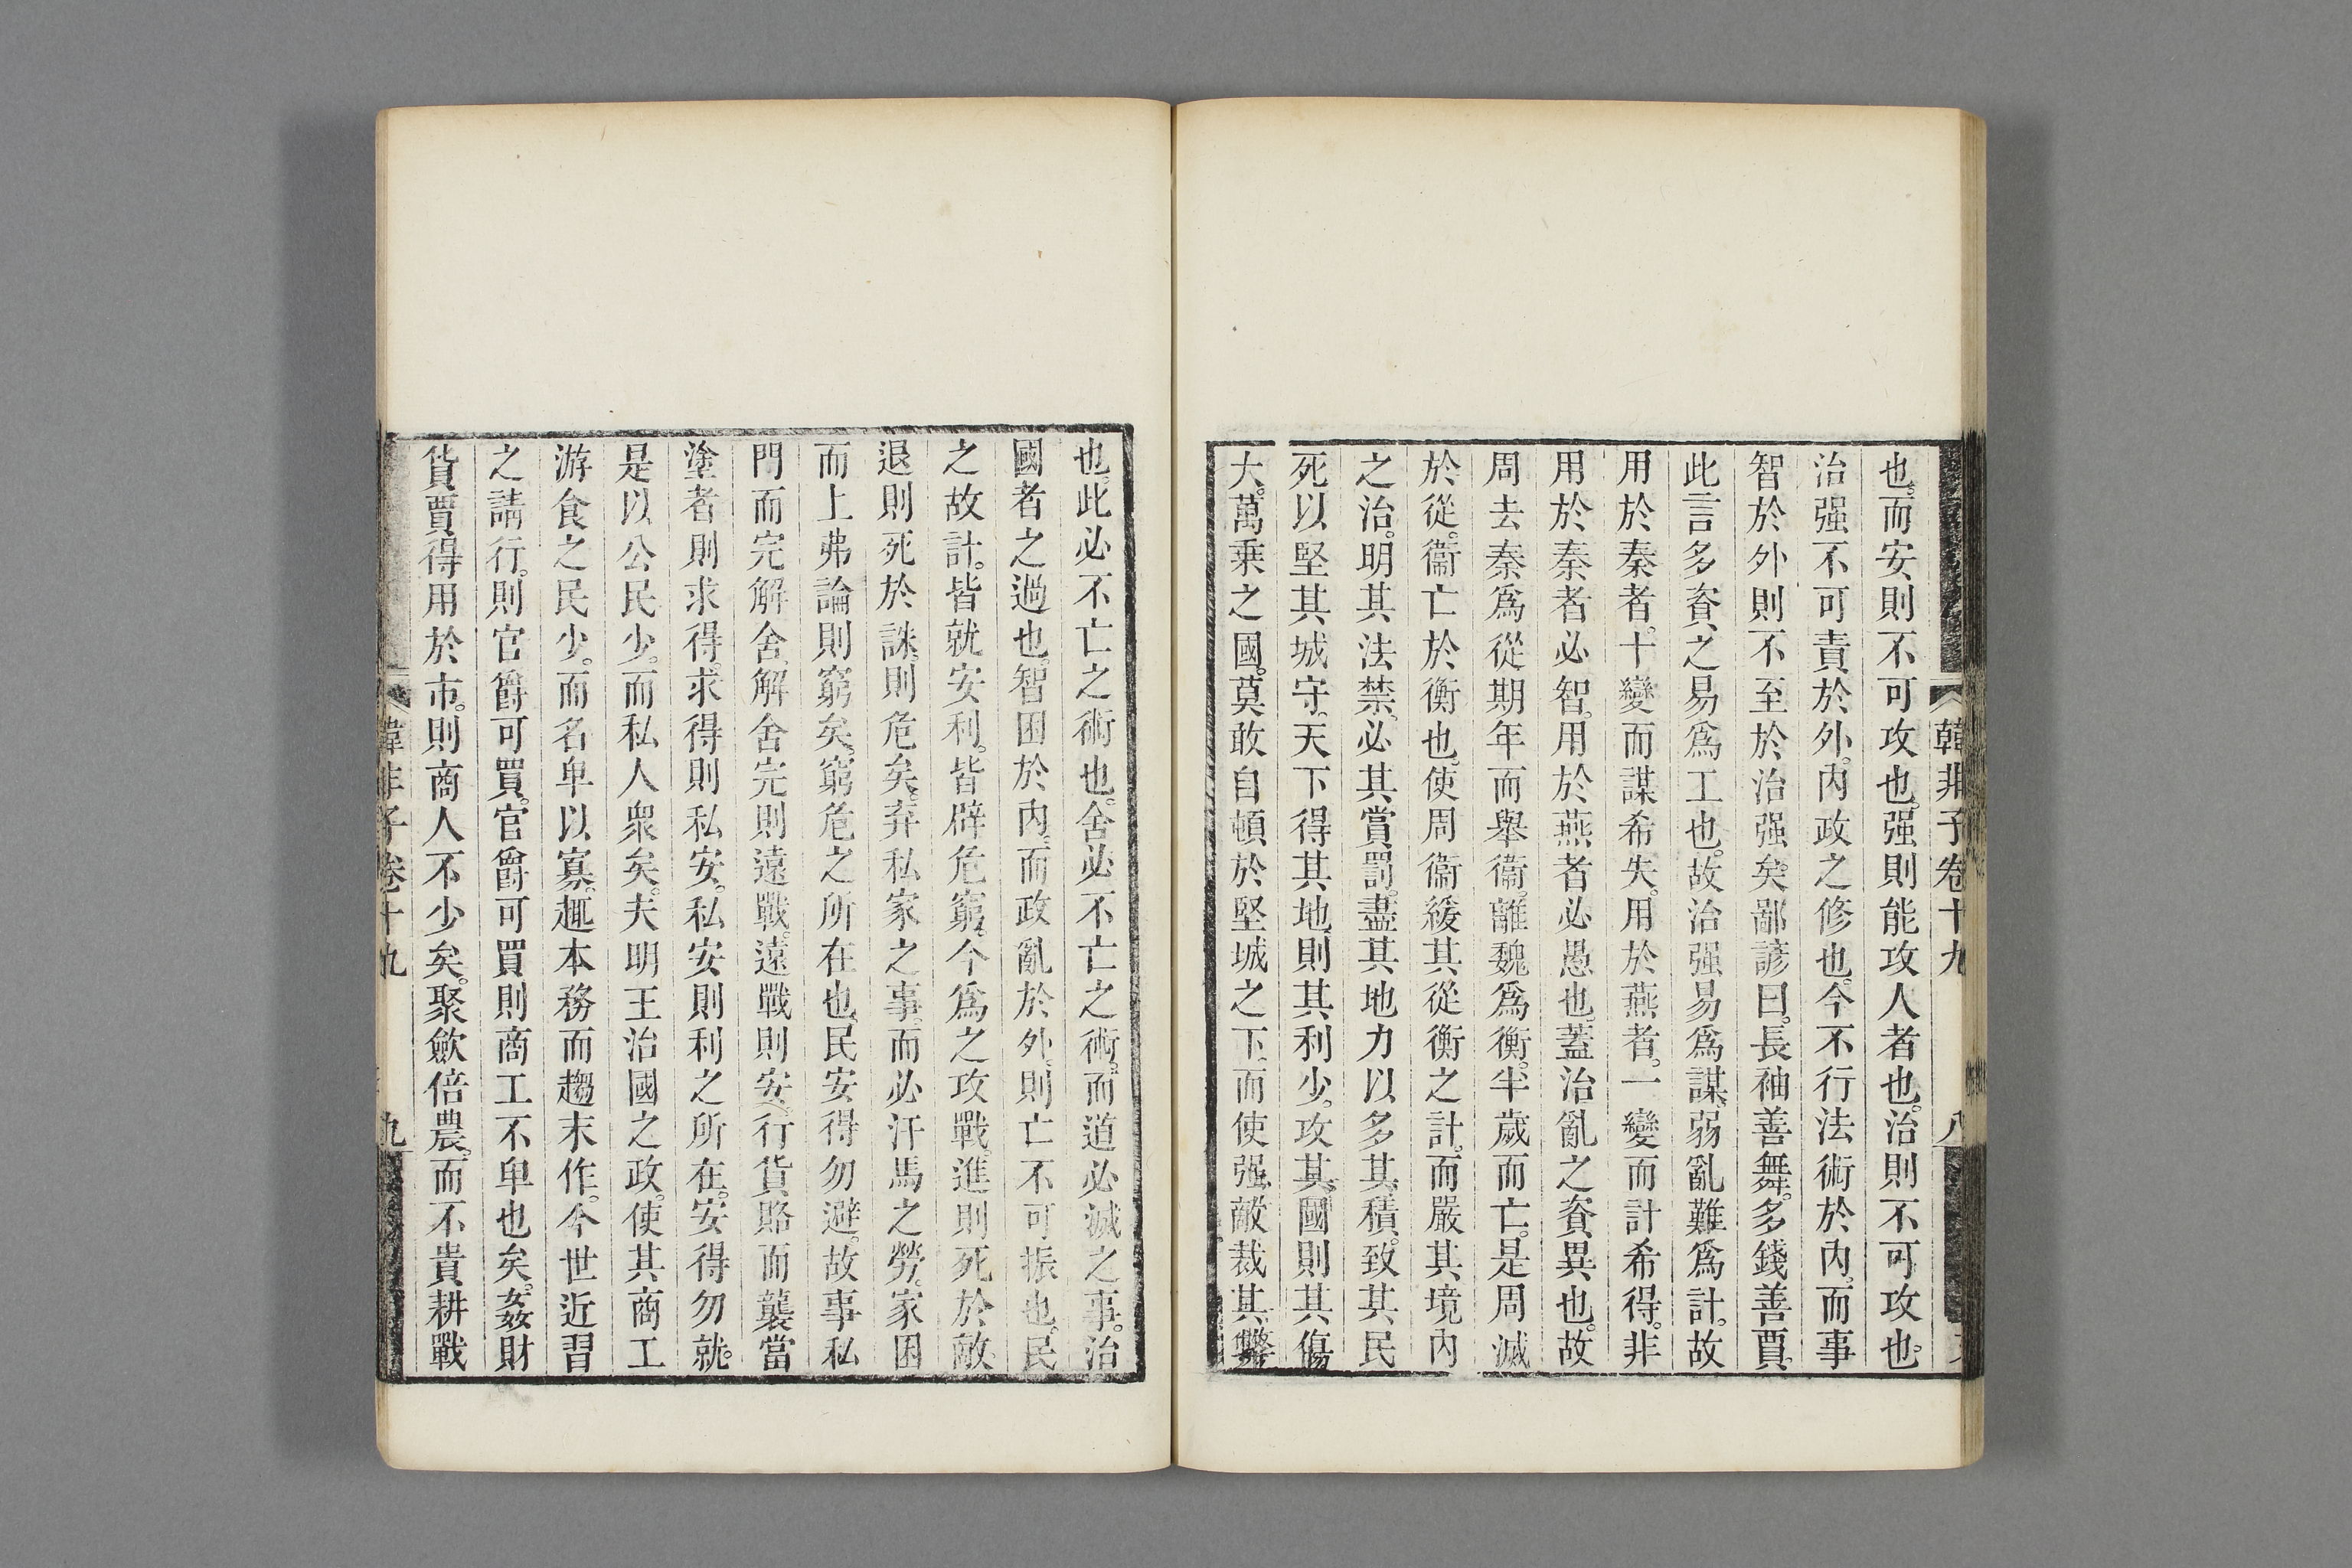 韓非子卷十九 八
也。而安則不可攻也。强則能攻人者也。治則不可攻也。
治强不可責於外。内政之修也。今不行法術於内。而事
智於外則不至於治强矣。鄙諺曰。長袖善舞。多錢善賈。
此言多資之易爲工也。故治强易爲謀。弱亂難爲計。故
用於秦者。十變而謀希失。用於燕者。一變而計希得。非
用於秦者必智。用於燕者必愚也。蓋治亂之資異也。故
周去秦爲從期年而舉衞。離魏爲衡。半歲而亡。是周滅
於從。衞亡於衡也。使周衞緩其從衡之計。而嚴其境内
之治。明其法禁。必其賞罰。盡其地力以多其積。致其民
死以堅其城守。天下得其地則其利少。攻其國則其傷
大。萬乘之國。莫敢自頓於堅城之下。而使强敵裁其弊
也。此必不亡之術也。舍必不亡之術。而道必滅之事。治
國者之過也。智困於内。而政亂於外。則亡不可振也。民
之故計。皆就安利。皆辟危窮。今爲之攻戰。進則死於敵。
退則死於誅。則危矣。弃私家之事。而必汗馬之勞。家困
而上弗論則窮矣。窮危之所在也。民安得勿避。故事私
門而完解舍。解舍完則遠戰。遠戰則安。行貨賂而襲當
塗者則求得。求得則私安。私安則利之所在。安得勿就。
是以公民少。而私人衆矣。夫明王治國之政。使其商工
游食之民少。而名卑以寡。趣本務而趨末作。今世近習
之請行。則官爵可買。官爵可買則商工不卑也矣。姦財
貨賈得用於市。則商人不少矣。聚斂倍農。而不貴耕戰
韓非子卷十九 九